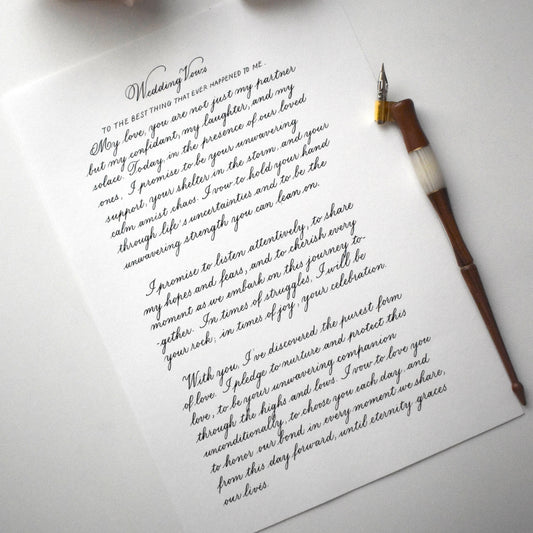 Wedding Vows
TO THE BEST THING THAT EVER HAPPENED TO ME.
My love, you are not just my partner
but my confidant, my laughter, and my
solace. Today, in the presence of our loved
ones, I promise to be your unwavering
support, your shelter in the storm, and your
calm amist chaos. I vow to hold your hand
through life's uncertainties and to be the
unwavering strength you can lean on.
I promise to listen attentively, to share
my hopes and fears, and to cherish every
moment as we embark on this journey to-
-gether. In times of struggles, I will be
your rock; in times of joy, your celebration.
With you, I've discovered the purest form
of love. I pledge to nurture and protect this
love, to be your unwavering companion
through the highs and lows. I vow to love you
unconditionally, to choose you each day and
to honor our bond in every moment we share,
from this day forward, until eternity graces
our lives.